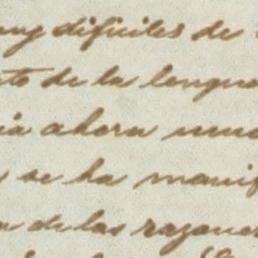 muy dificiles de
to de la lengua
ia ahora una
se ha manif
a de las razones